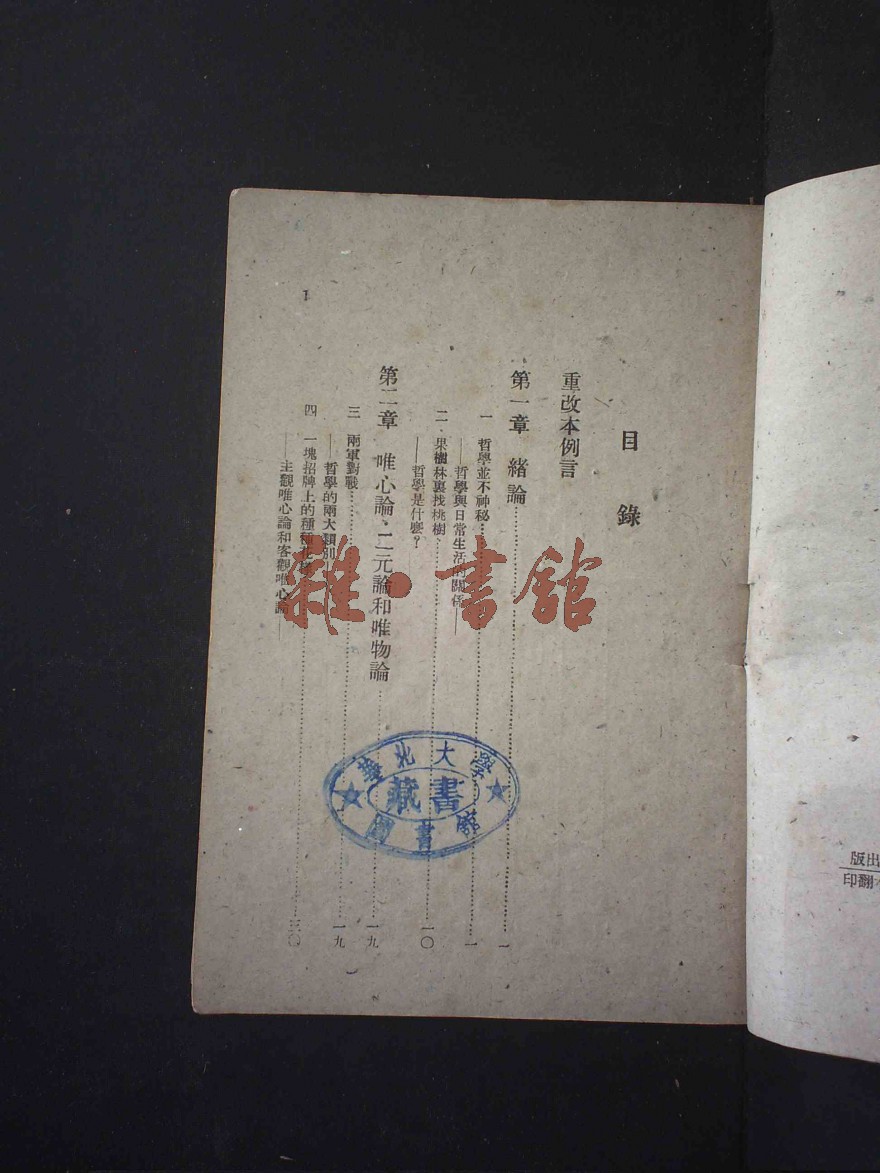 目錄
重改本例言
第一章 緒論……一
一 哲學並不神秘……一
——哲學與日常生活的關係——
二 果樹林裏找桃樹……一〇
——哲學是什麼？
第二章 唯心論·二元論和唯物論……一九
三 兩軍對戰……一九
——哲學的兩大類別
四 一塊招牌上的種種花樣……三〇
——主觀唯心論和客觀唯心論——
華北大學
藏書
圖書館
雜·書館
出版
翻印